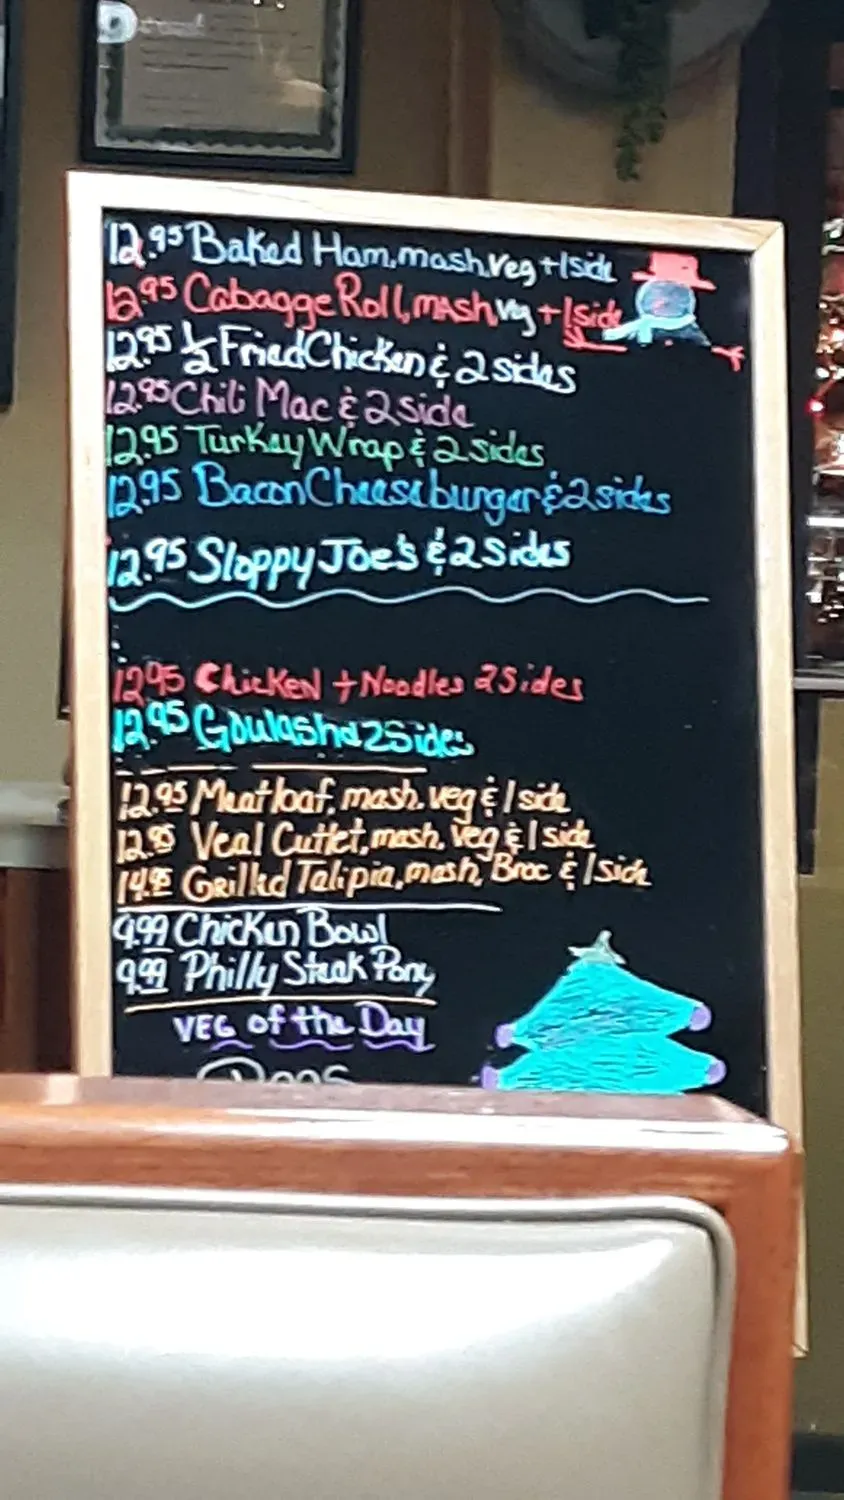 12.95 Baked Ham, mash, veg + 1 side
12.95 Cabagge Roll, mash, veg + 1 side
12.95 1/2 Fried Chicken & 2 sides
12.95 Chili Mac & 2 side
12.95 Turkey Wrap & 2 sides
12.95 Bacon Cheeseburger & 2 sides
12.95 Sloppy Joe's & 2 Sides
12.95 Chicken + Noodles 2 Sides
12.95 Goulash & 2 Sides
12.95 Meatloaf, mash, veg & 1 side
12.95 Veal Cutlet, mash, veg & 1 side
14.95 Grilled Talipia, mash, Broc & 1 side
9.99 Chicken Bowl
9.99 Philly Steak Pony
VEG of the Day